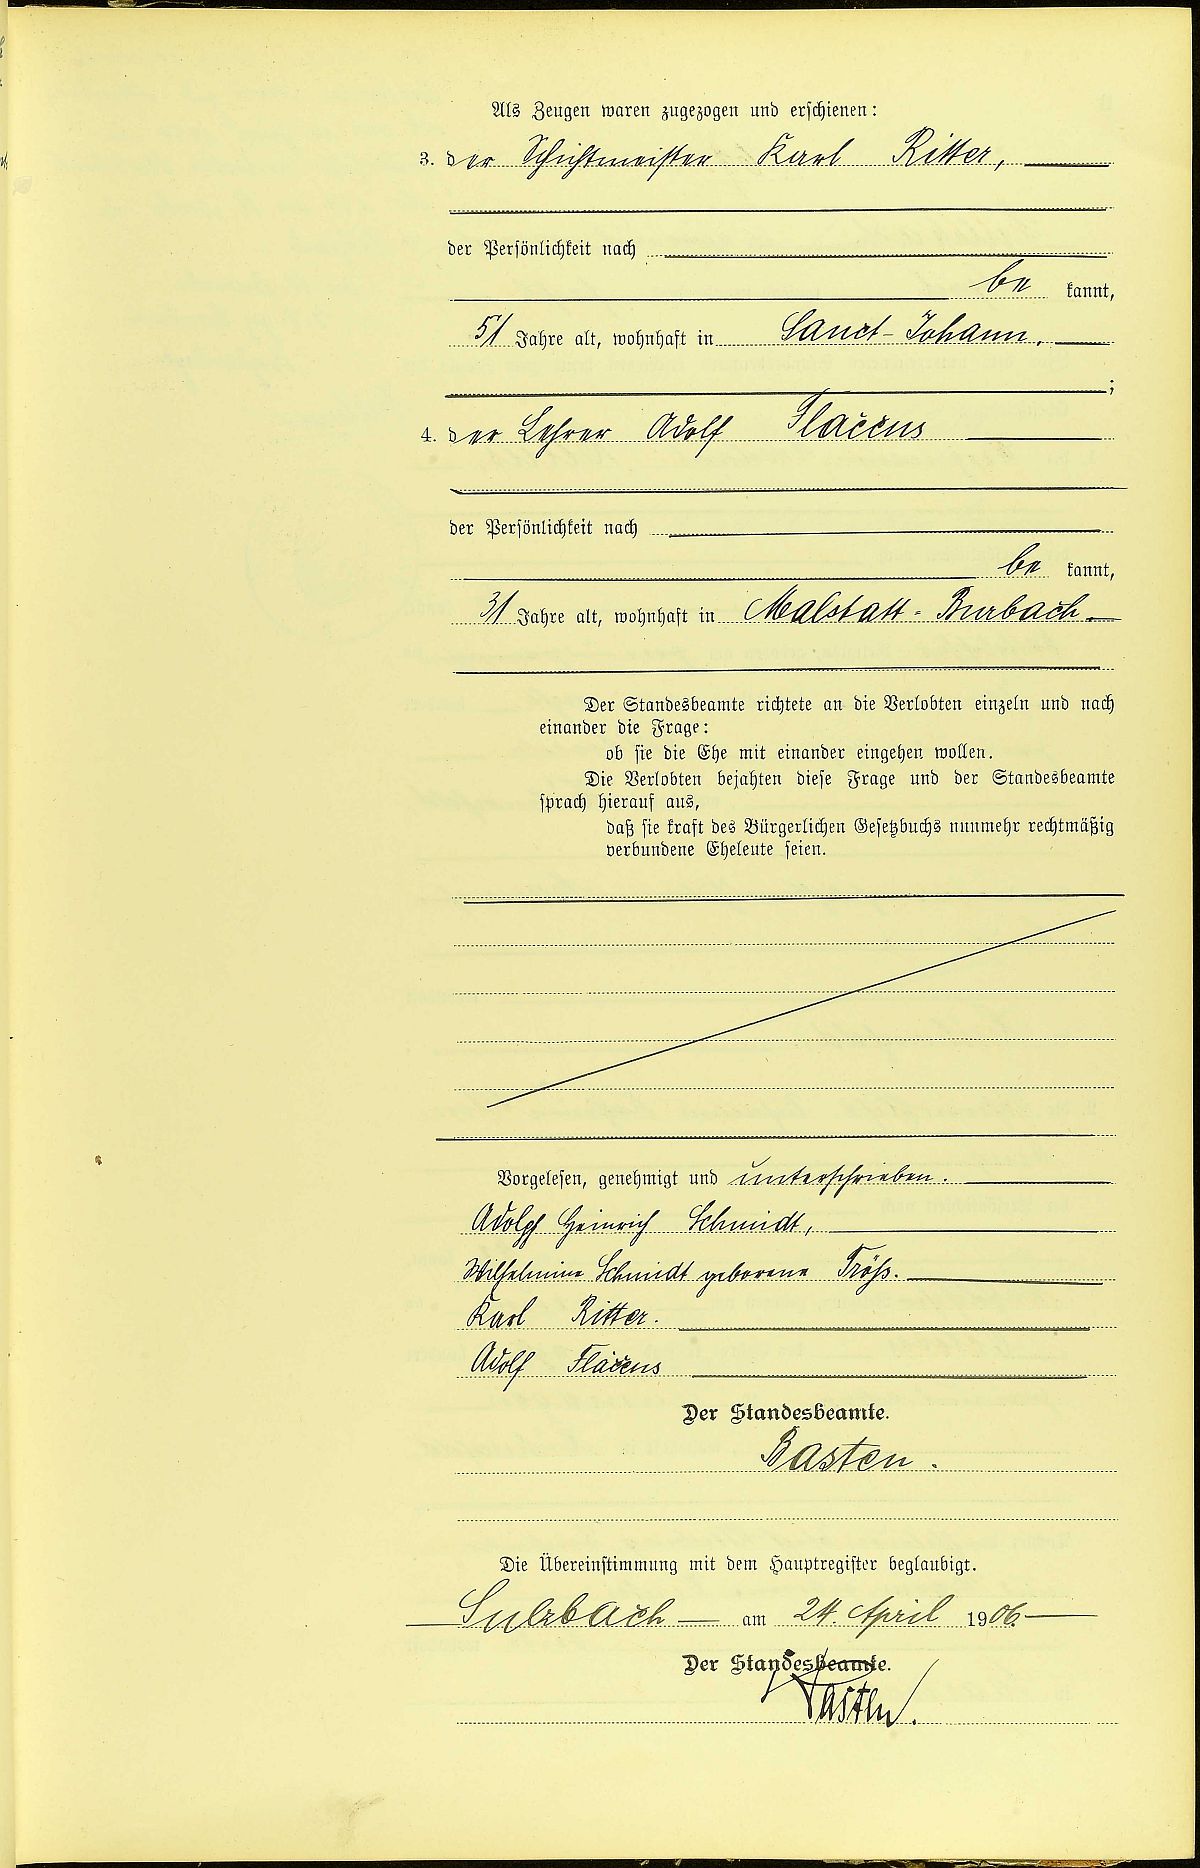 Als Zeugen waren zugezogen und erschienen:
3. der Schichtmeister Karl Ritter,
der Persönlichkeit nach
be kannt,
51 Jahre alt, wohnhaft in Sanct-Johann.
;
4. der Lehrer Adolf Flaccus
der Persönlichkeit nach
be kannt,
31 Jahre alt, wohnhaft in Malstatt-Burbach.
Der Standesbeamte richtete an die Verlobten einzeln und nach
einander die Frage:
ob sie die Ehe mit einander eingehen wollen.
Die Verlobten bejahten diese Frage und der Standesbeamte
sprach hierauf aus,
daß sie kraft des Bürgerlichen Gesetzbuchs nunmehr rechtmäßig
verbundene Eheleute seien.
Vorgelesen, genehmigt und unterschrieben.
Adolph Heinrich Schmidt,
Wilhelmine Schmidt geborene Tröß.
Karl Ritter.
Adolf Flaccus
Der Standesbeamte.
Basten.
Die Übereinstimmung mit dem Hauptregister beglaubigt.
Sulzbach am 24. April 1906.
Der Standesbeamte.
Basten.